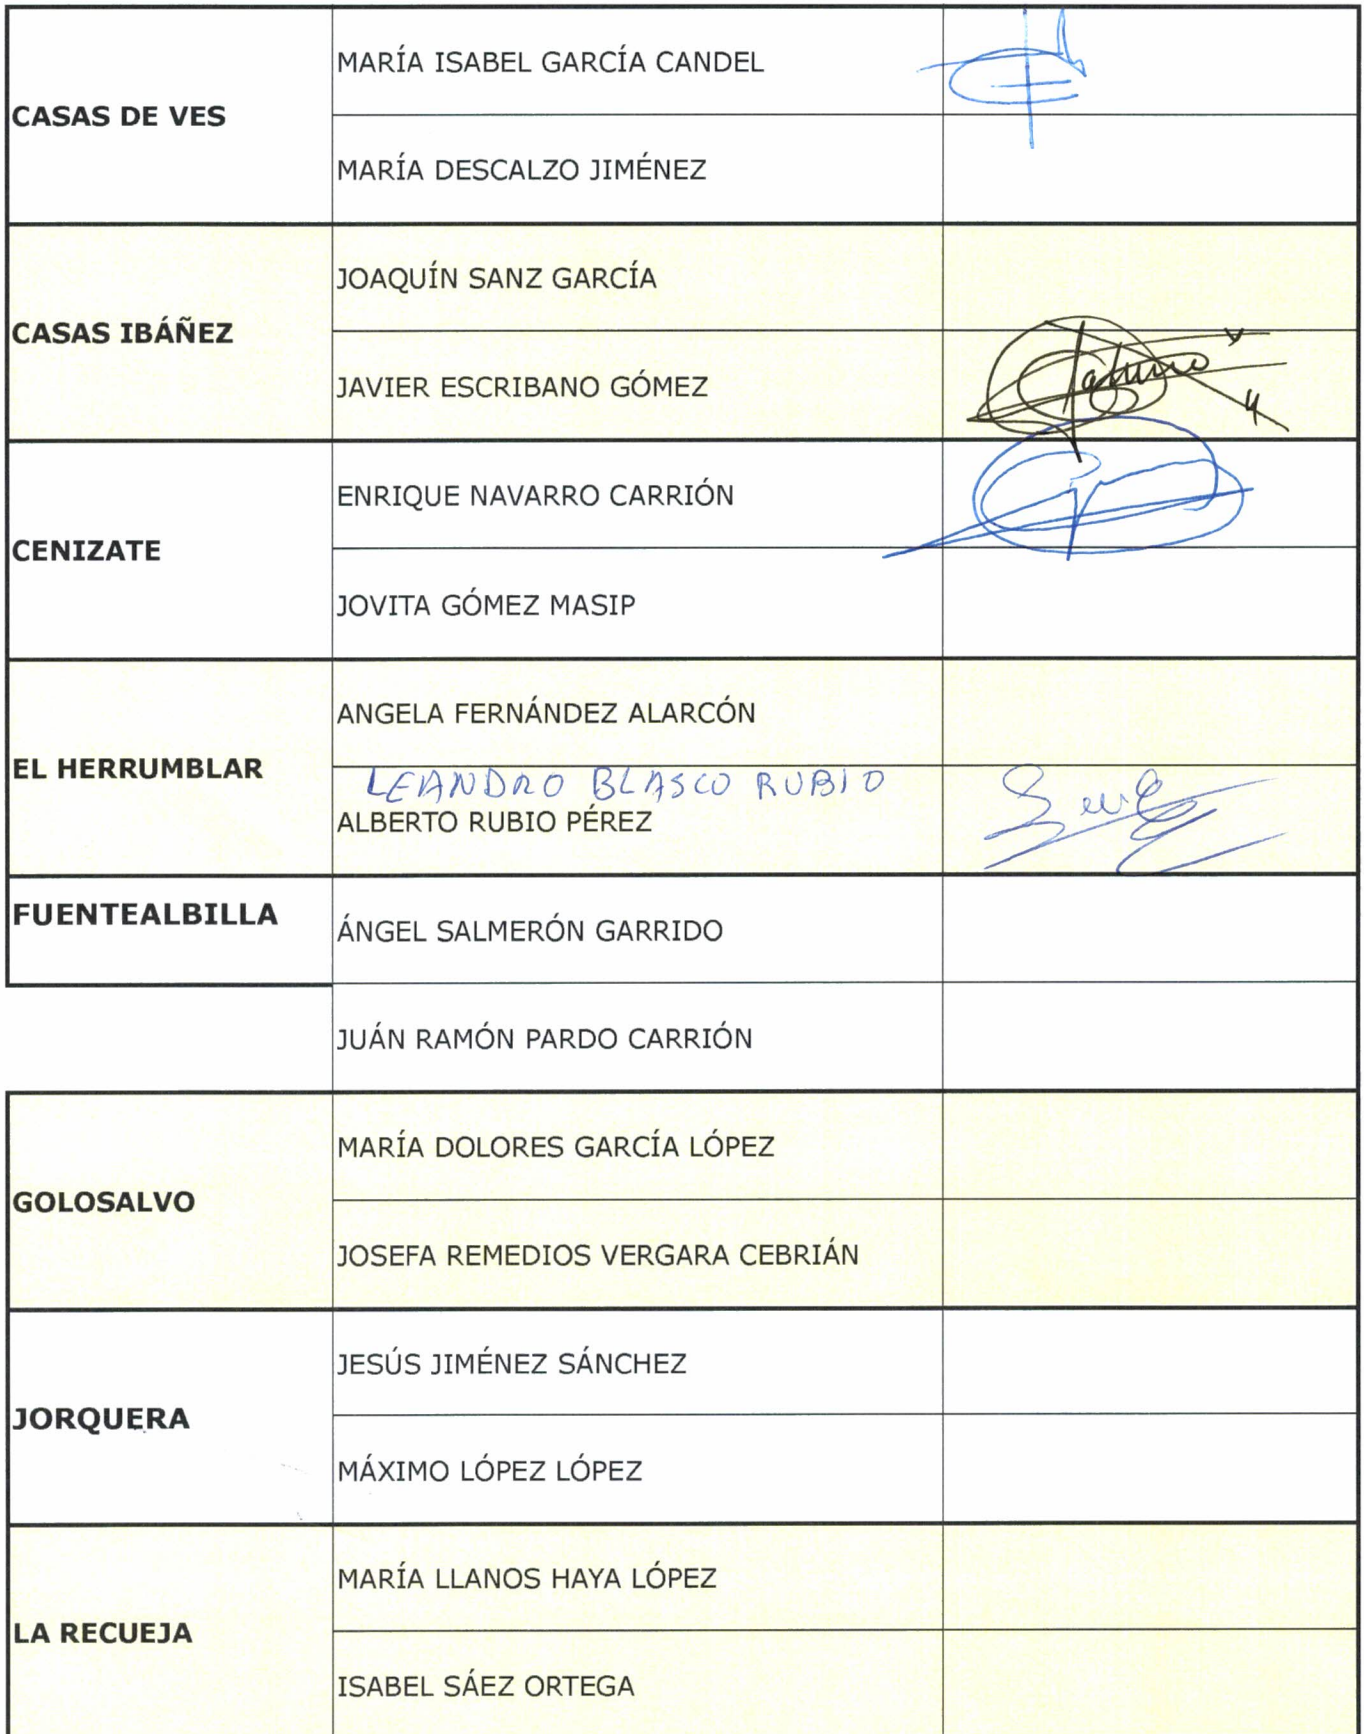 CASAS DE VES
MARÍA ISABEL GARCÍA CANDEL
MARÍA DESCALZO JIMÉNEZ
CASAS IBÁÑEZ
JOAQUÍN SANZ GARCÍA
JAVIER ESCRIBANO GÓMEZ
CENIZATE
ENRIQUE NAVARRO CARRIÓN
JOVITA GÓMEZ MASIP
EL HERRUMBLAR
ANGELA FERNÁNDEZ ALARCÓN
LEANDRO BLASCO RUBIO
ALBERTO RUBIO PÉREZ
FUENTEALBILLA
ÁNGEL SALMERÓN GARRIDO
JUÁN RAMÓN PARDO CARRIÓN
GOLOSALVO
MARÍA DOLORES GARCÍA LÓPEZ
JOSEFA REMEDIOS VERGARA CEBRIÁN
JORQUERA
JESÚS JIMÉNEZ SÁNCHEZ
MÁXIMO LÓPEZ LÓPEZ
LA RECUEJA
MARÍA LLANOS HAYA LÓPEZ
ISABEL SÁEZ ORTEGA